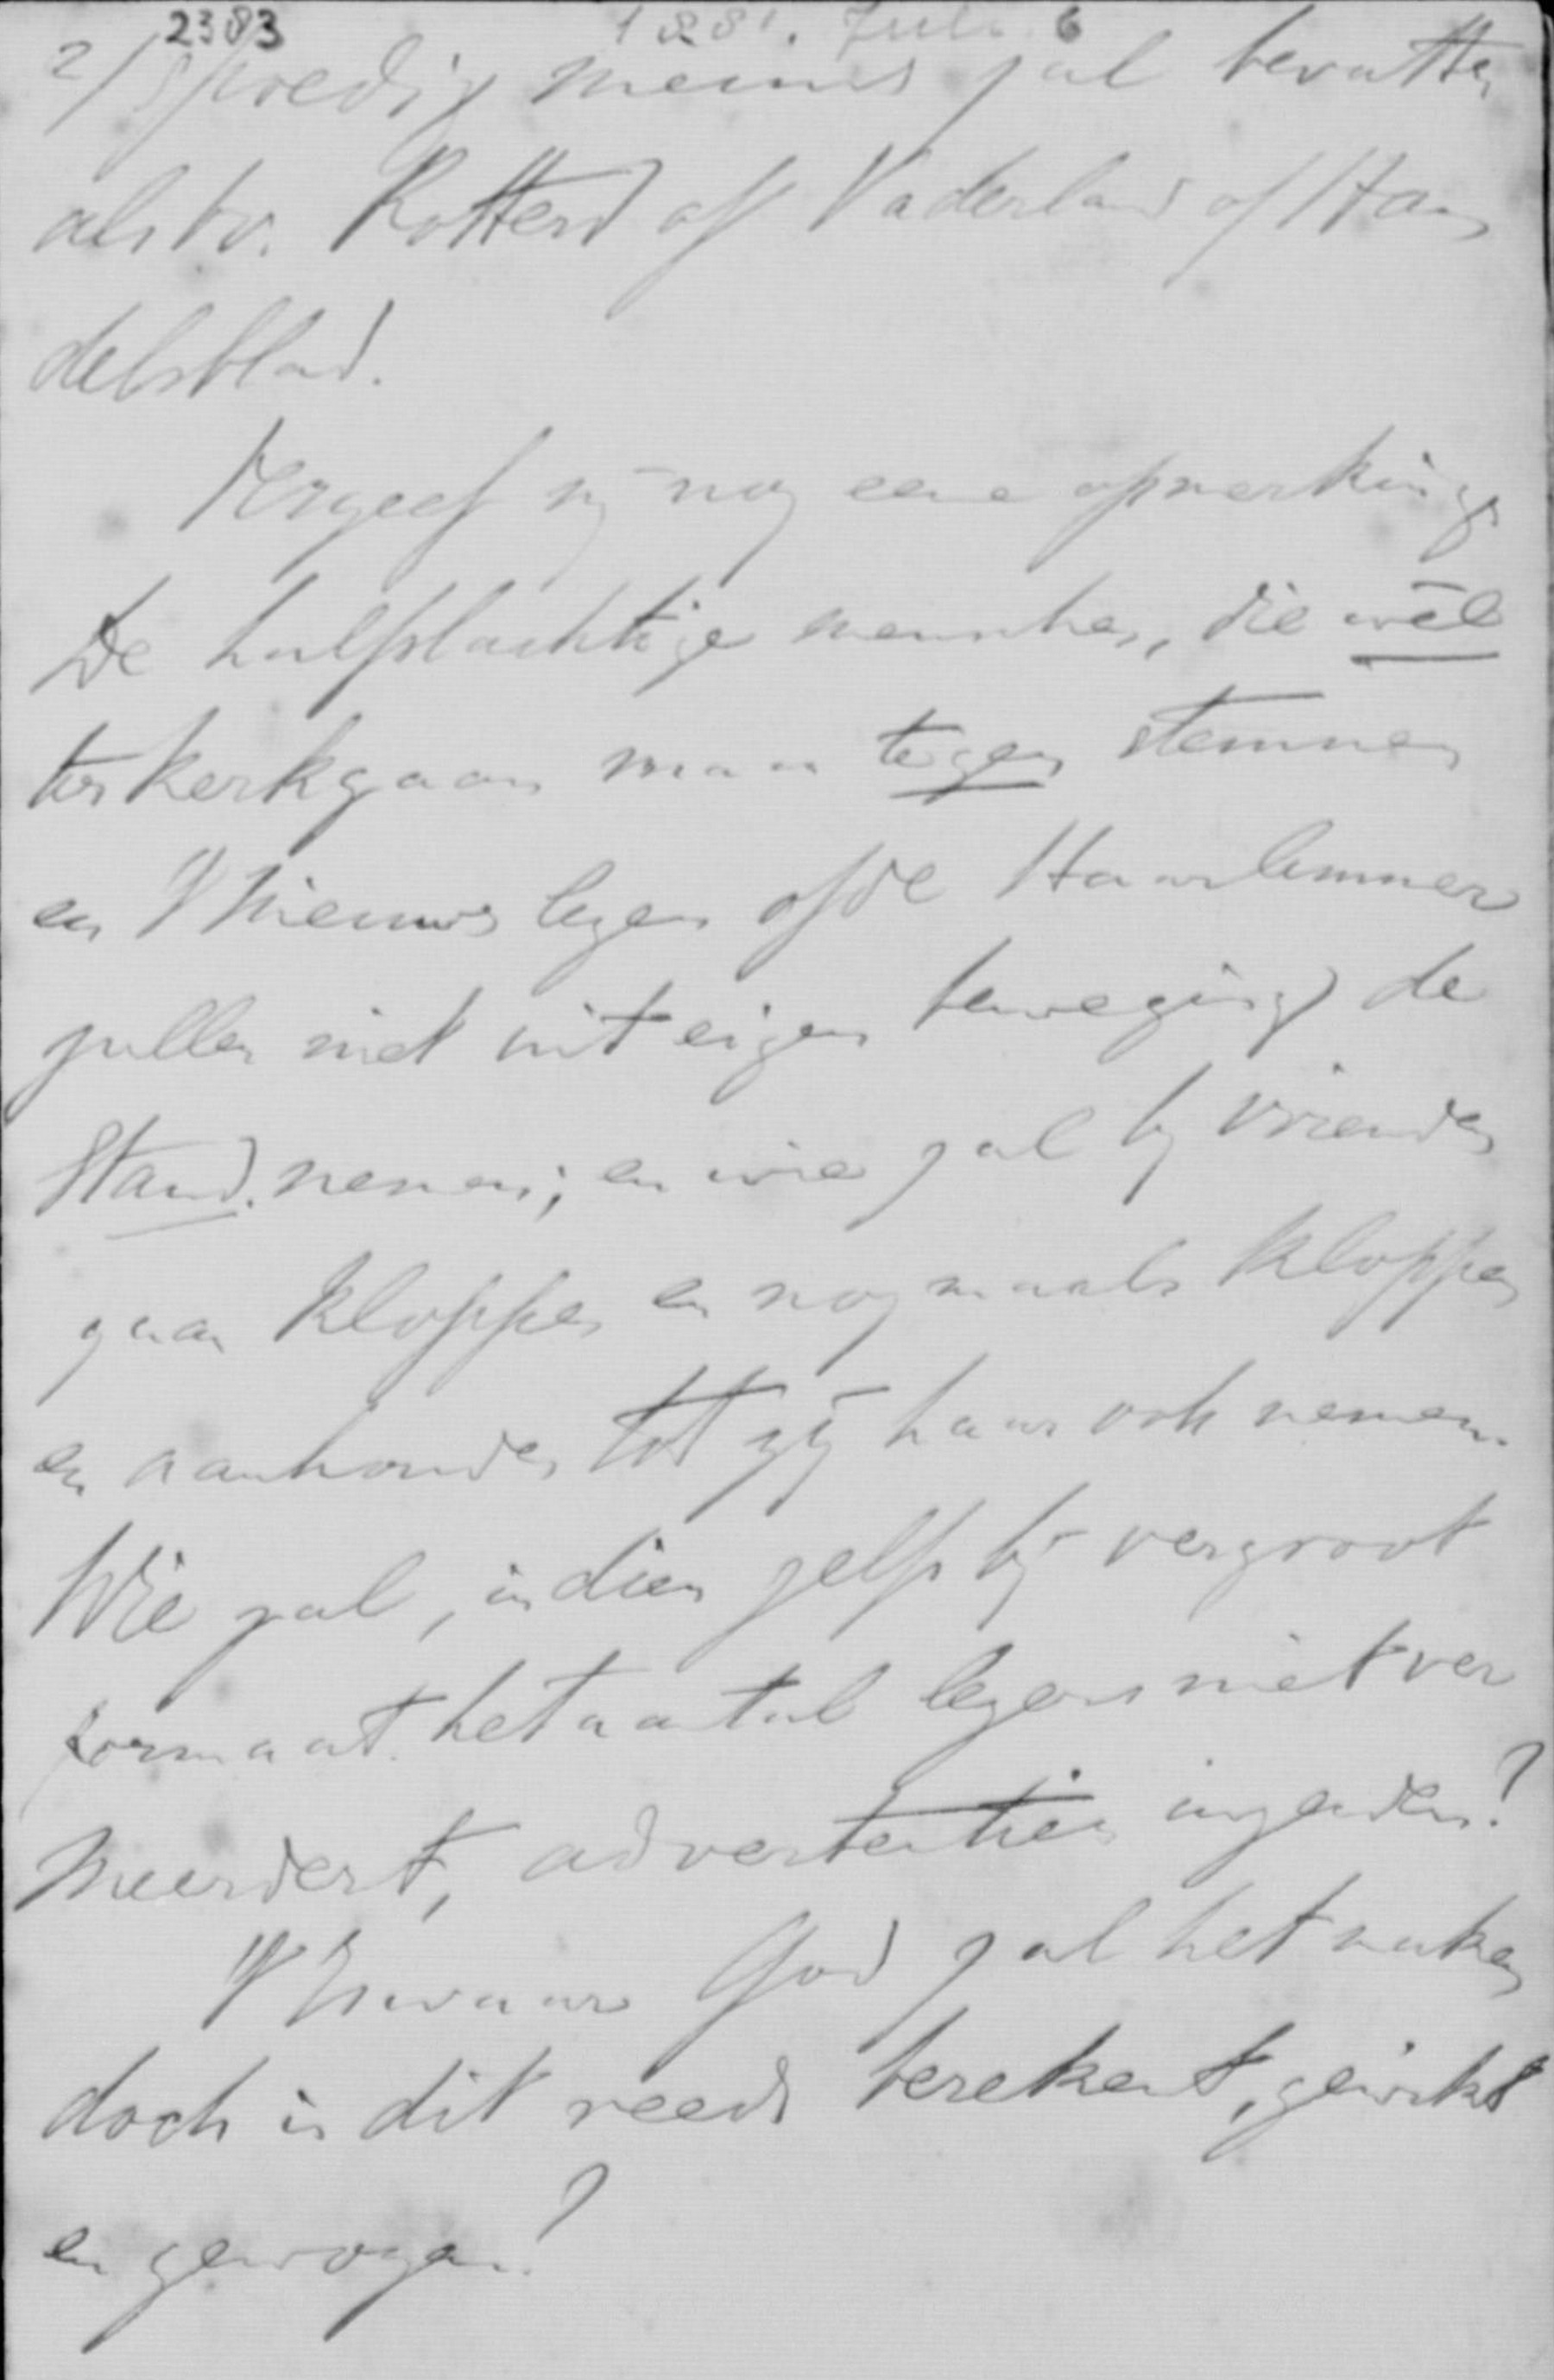 2383 1881. Juli 6
2/ spoedig nieuws zal bevatten
als bv. Rotterd of Vaderland of Han
delsblad.
Vergeef mij nog eene opmerking.
De halfslachtige menschen, die wél
ter kerk gaan maar tegen stemmen
en 't Nieuws lezen of de Haarlemmer
zullen niet uit eigen beweging de
Stand. nemen; en wie zal bij vrienden
gaan kloppen en nogmaals kloppen
en aanhouden tot zij haar ook nemen.
Wie zal, indien zelfs bij vergroot
formaat het aantal lezers niet ver
meerdert, advertentien inzenden?
't Is waar God zal het maken
doch is dit reeds berekent, gewikt
en gewogen?